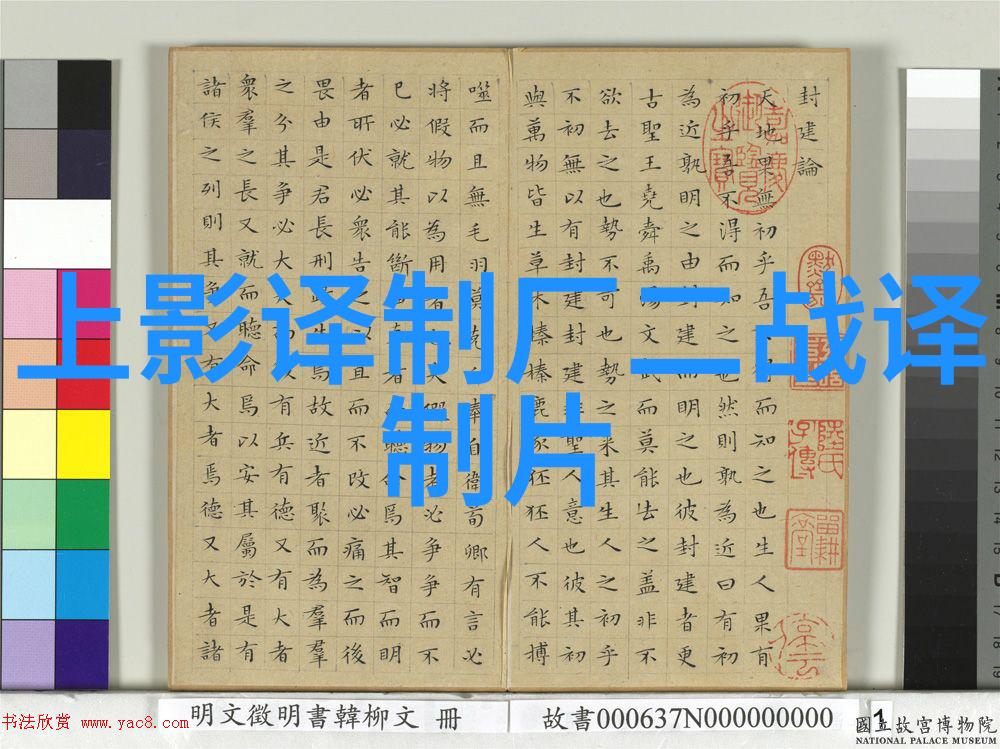 上影译制厂二战译
制片
封建論
天地果無初乎吾不得而知之也生人果有
初乎吾不得而知之也然則孰為近曰有初
為近孰明之由封建而明之也彼封建者更
古聖王堯舜禹湯文武而莫能去之蓋非不
欲去之也勢不可也勢之来其生人之初乎
不初無以有封建封建非聖人意也彼其初
與萬物皆生草木榛榛鹿豕狉狉人不能搏
噬而且無毛羽莫克自奉自衛荀卿有言必
將假物以為用者也夫假物者必爭爭而不
已必就其能斷曲直者而聽命焉其智而明
者所伏必衆告之以直而不改必痛之而後
畏由是君長刑政生焉故近者聚而為羣羣
之分其爭必大大而後有兵有德又有大者
衆羣之長又就而聽命焉以安其屬於是有
諸侯之列則其爭又有大者焉德又大者諸
书法欣赏 www.yac8.com
明文徵明書韓柳文 冊
故書000637N000000000
1
國立故宮博物院
NATIONAL PALACE MUSEUM